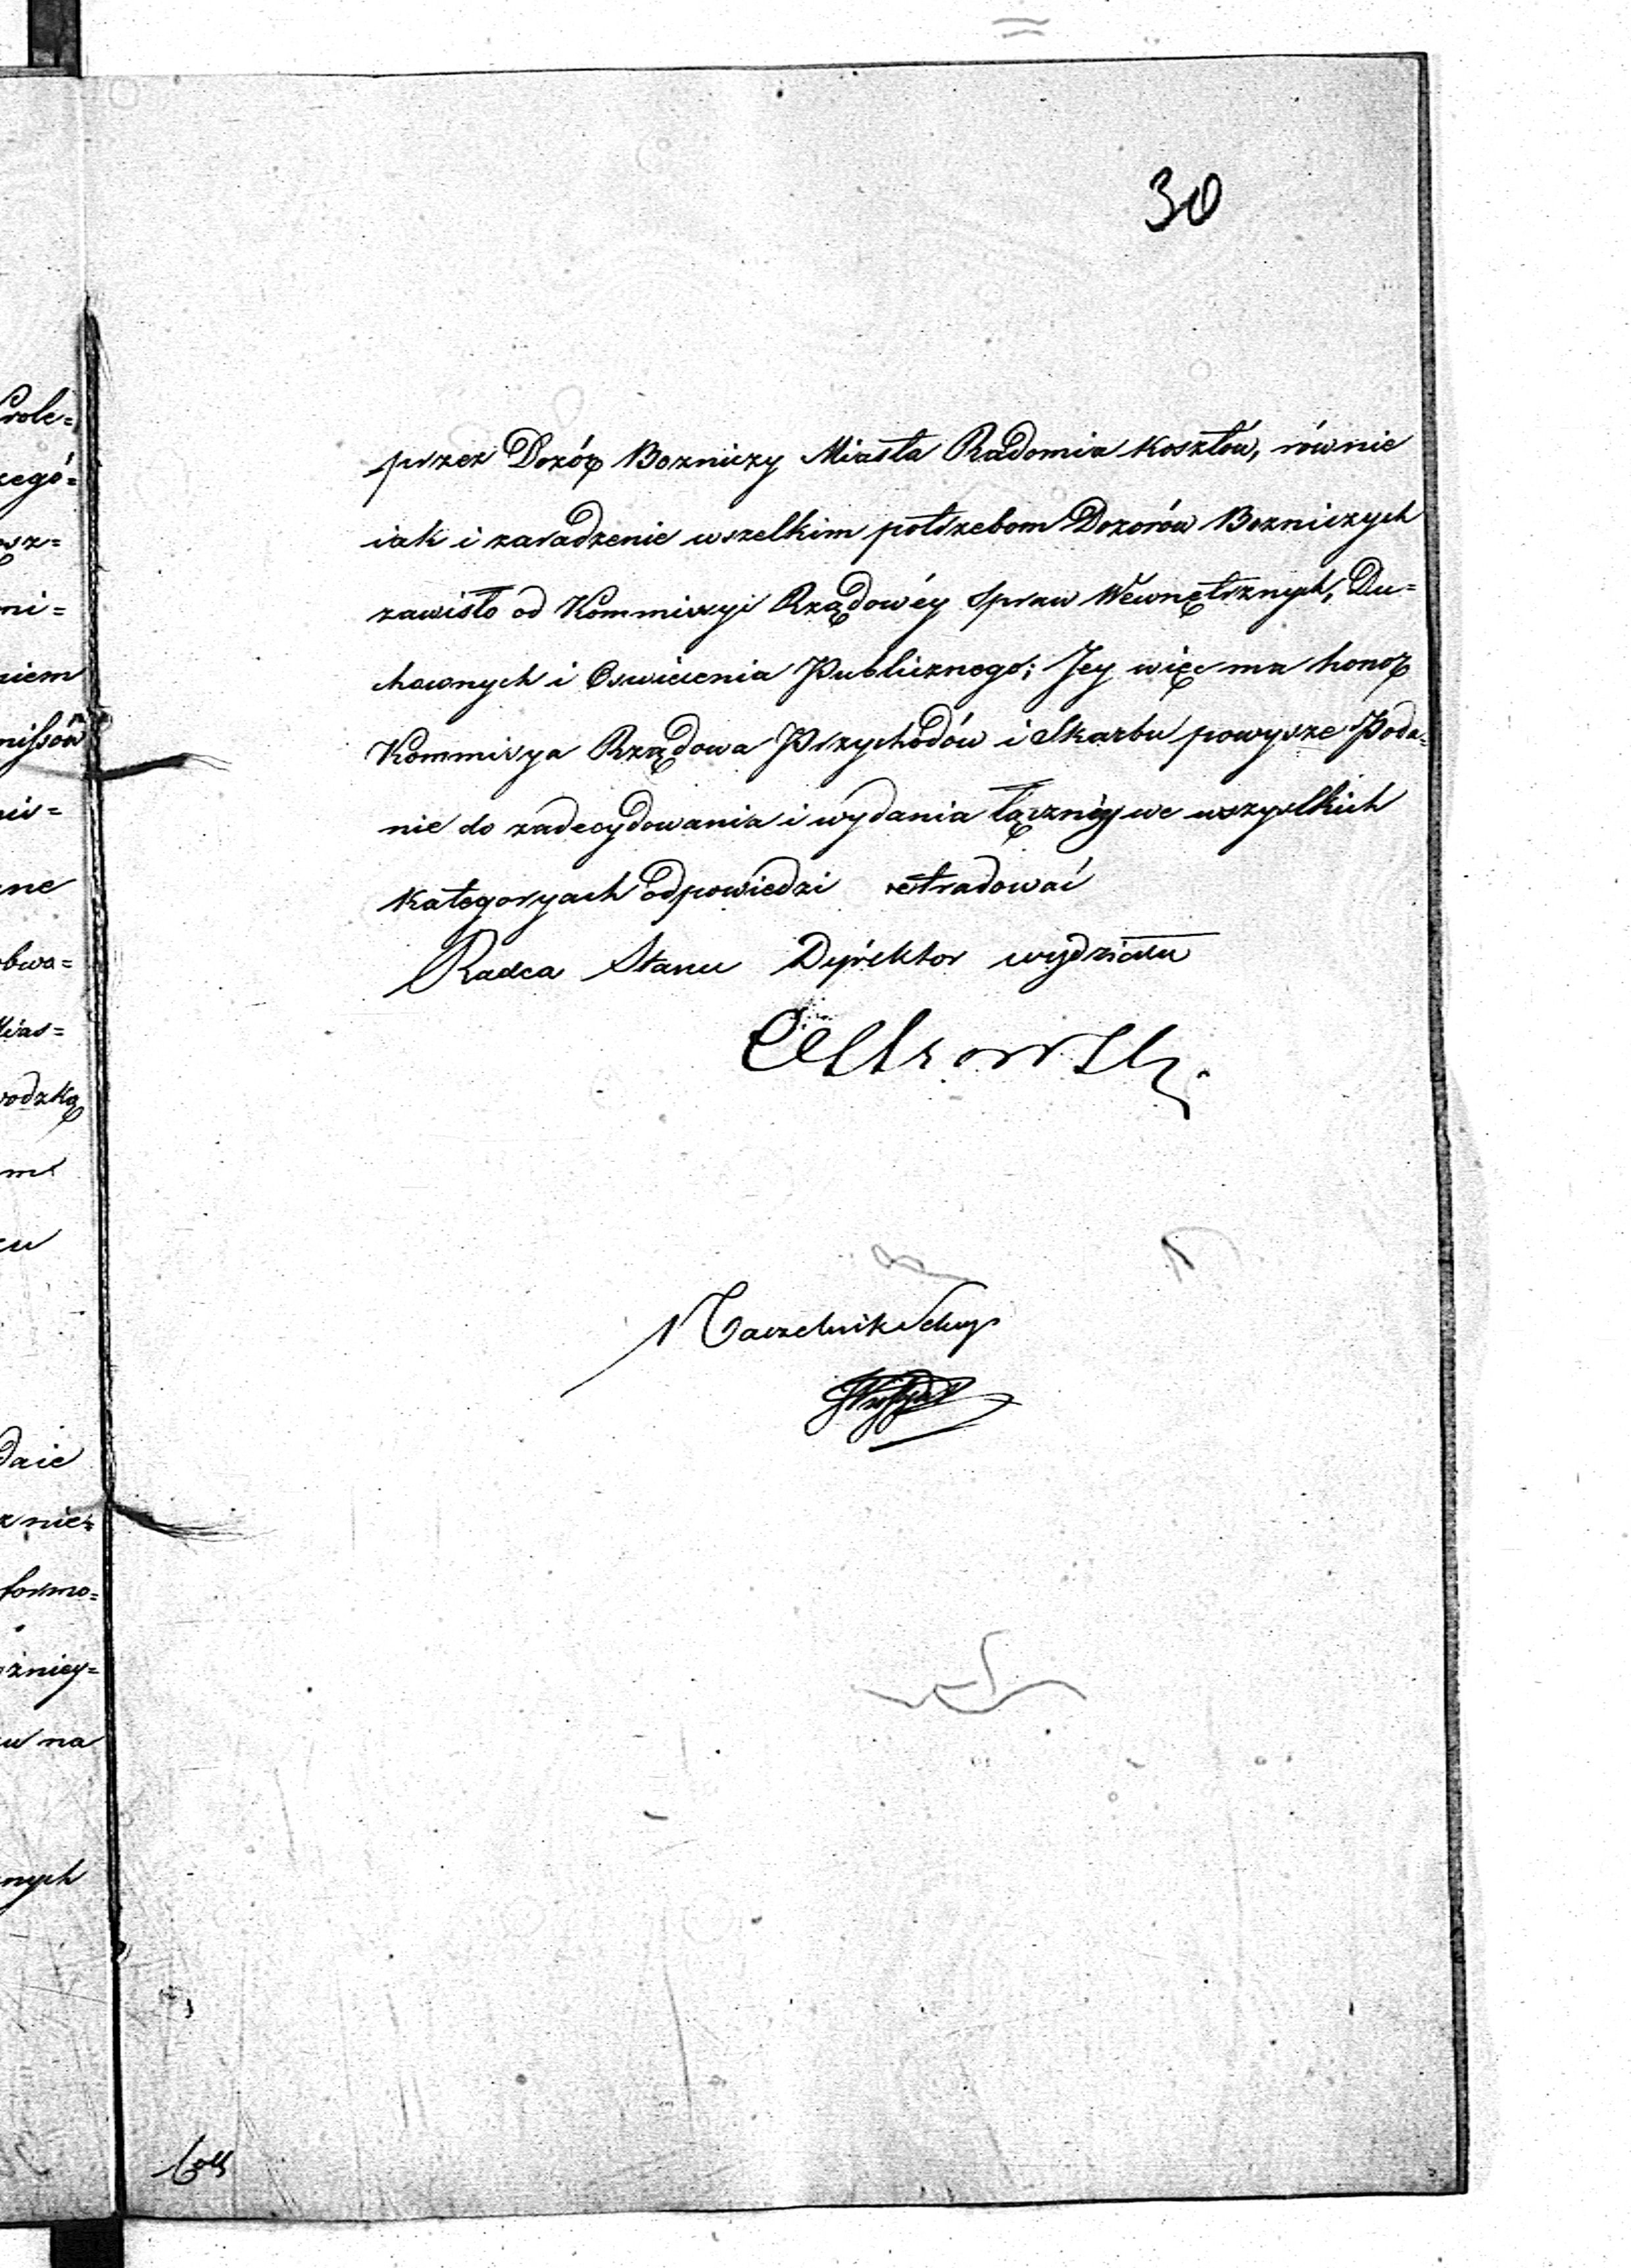 30
przez Dozór Bozniczy Miasta Radomia kosztów, równie
iak i zaradzenie wszelkim potrzebom Dozorów Bozniczych
zawisło od Kommissyi Rządowéy Spraw Wewnętrznych, Du=
chownych i Oswiecenia Publicznego; Jey więc ma honor
Kommisya Rządowa Przychodów i Skarbu powysze Poda=
nie do zadecydowania i wydania łączniey we wszystkich
kategoryach odpowiedzi retradować
Radca Stanu Dyrektor wydziału
Naczelnik Sekcyi
zegó=
mi=
niem
missów
nis=
ne
obwa=
wodzką
m
zu
daie
z nie=
formo=
żniey=
u na
nych